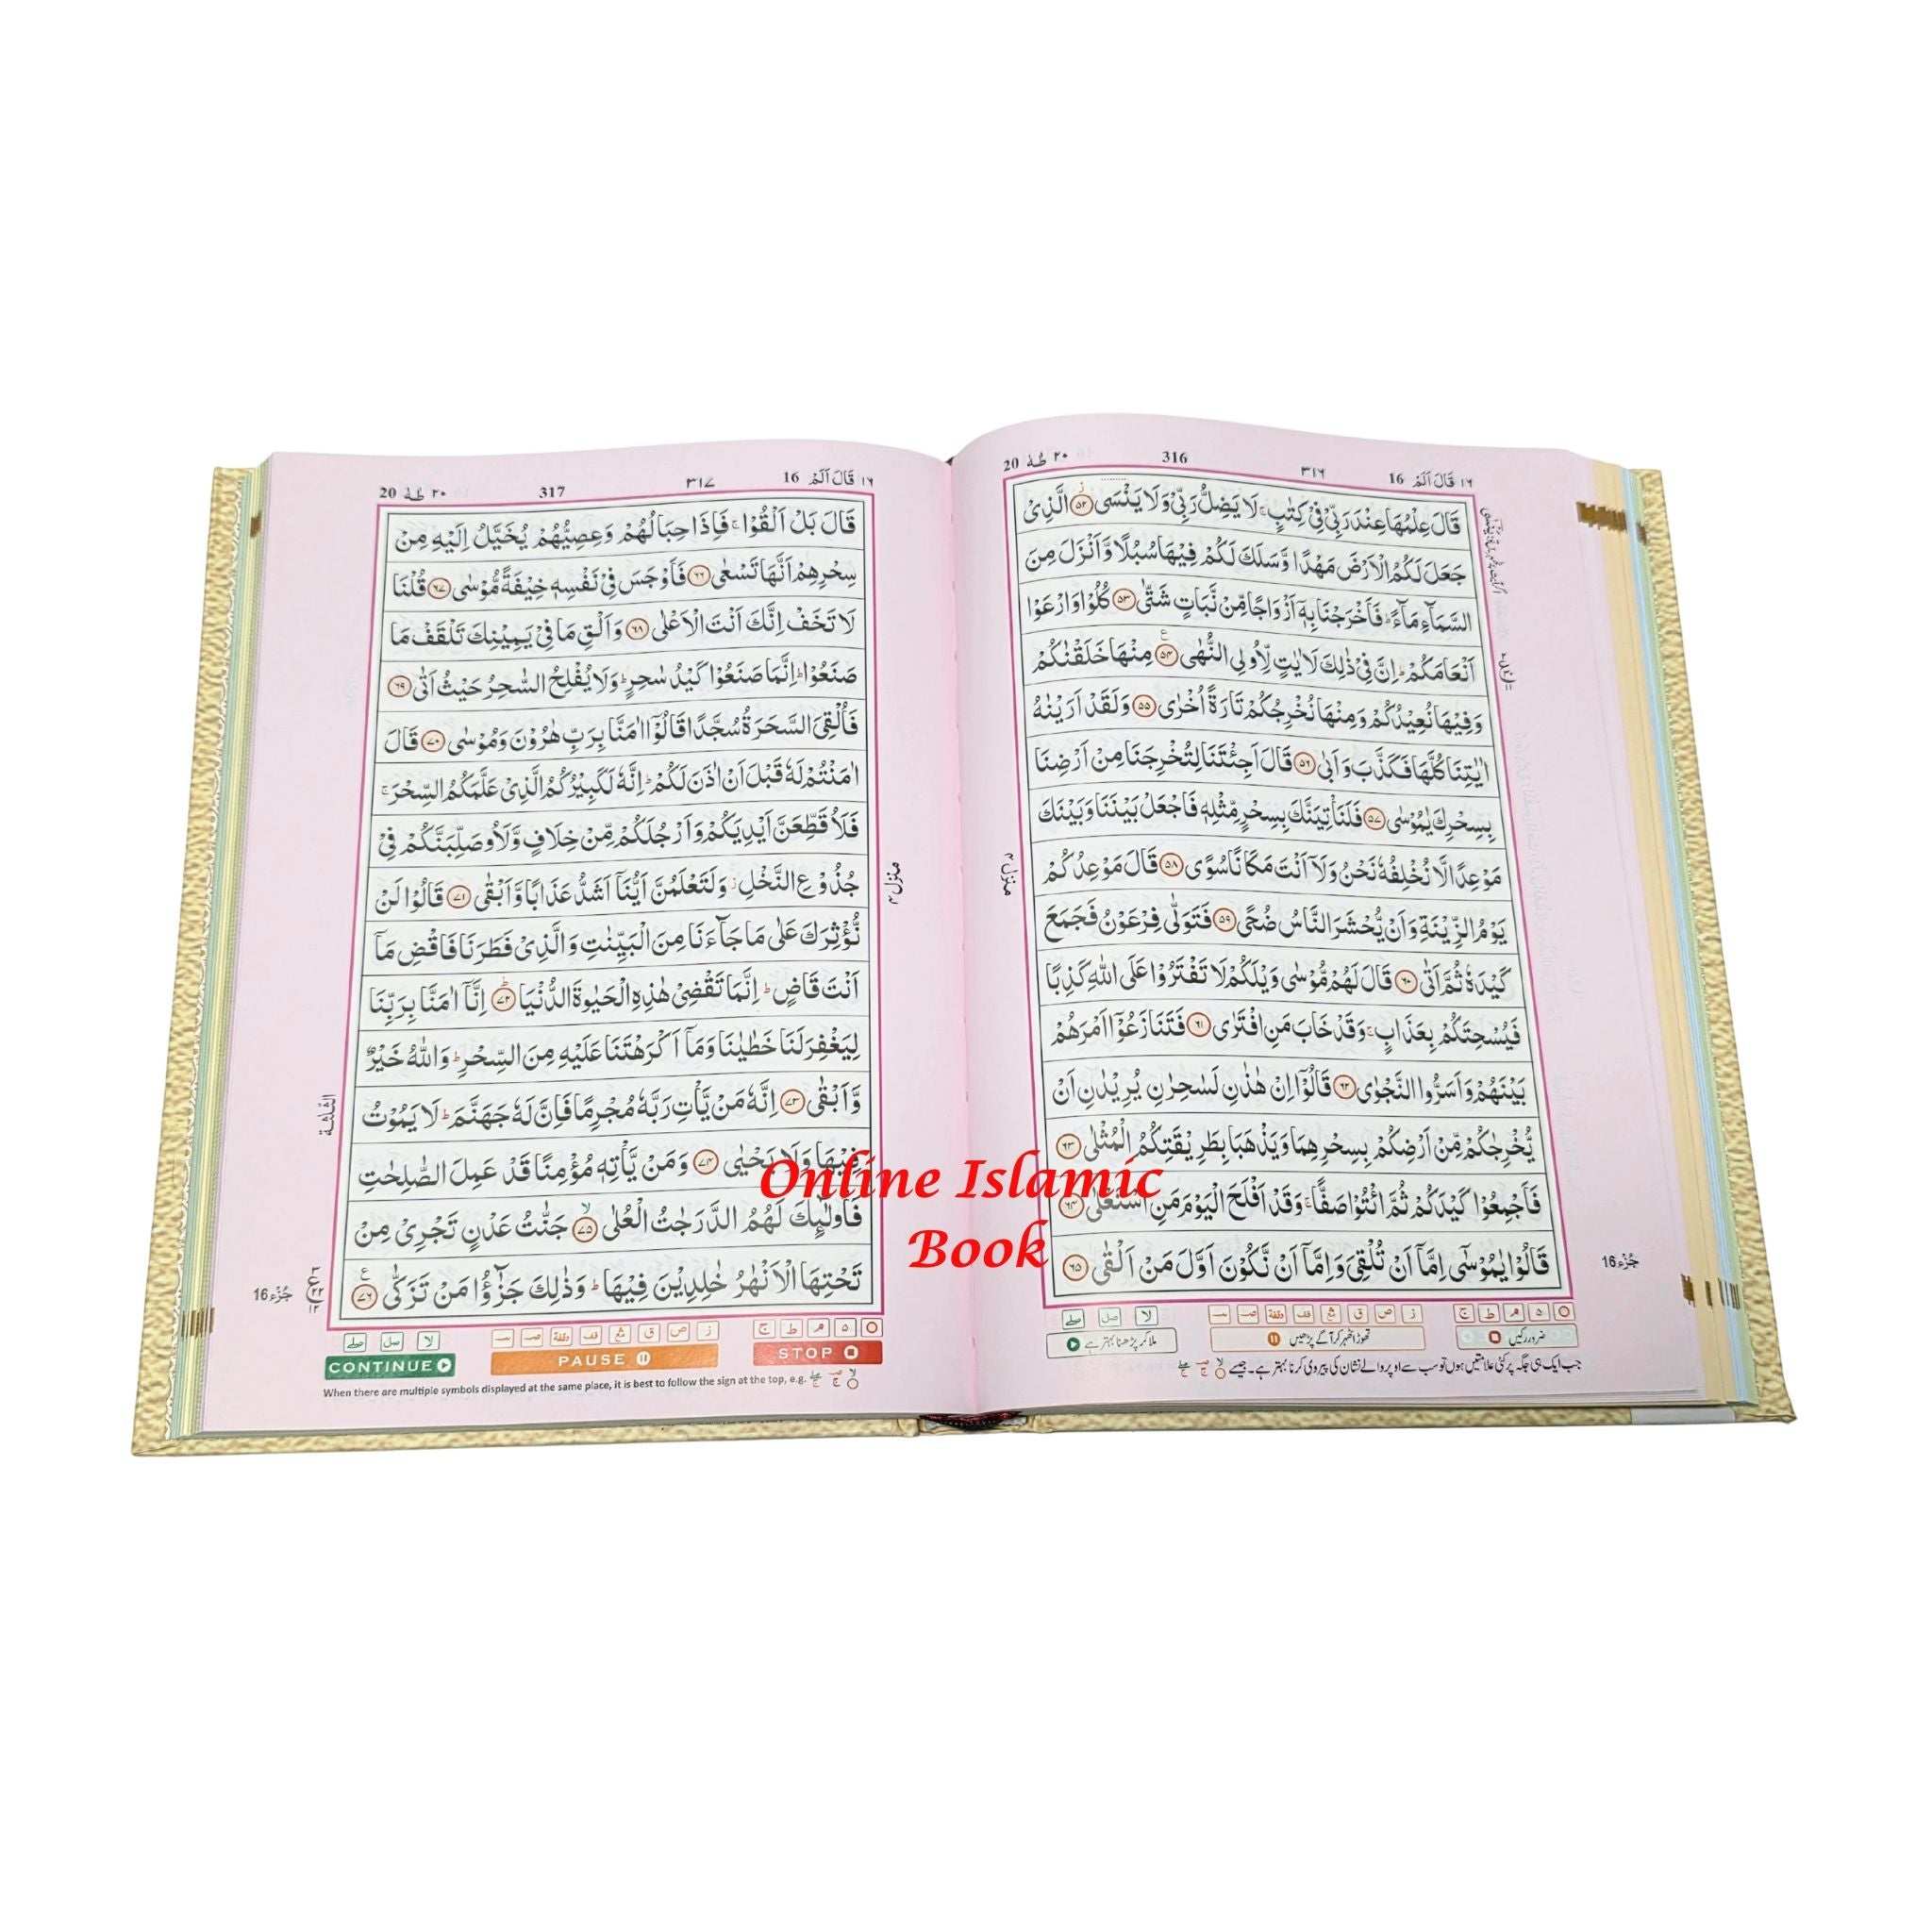 ١٦ قَالَ اَلَمْ 16 ٣١٦ 316 ٢٠ طٰهٰ 20
قَالَ عِلْمُهَا عِنْدَ رَبِّيْ فِيْ كِتٰبٍ ۚ لَا يَضِلُّ رَبِّيْ وَلَا يَنْسَى ۟ ﴿٥٢﴾ الَّذِيْ
جَعَلَ لَكُمُ الْاَرْضَ مَهْدًا وَّسَلَكَ لَكُمْ فِيْهَا سُبُلًا وَّاَنْزَلَ مِنَ
السَّمَآءِ مَآءً ؕ فَاَخْرَجْنَا بِهٖٓ اَزْوَاجًا مِّنْ نَّبَاتٍ شَتّٰى ﴿٥٣﴾ كُلُوْا وَارْعَوْا
اَنْعَامَكُمْ ؕ اِنَّ فِيْ ذٰلِكَ لَاٰيٰتٍ لِّاُولِي النُّهٰى ﴿٥٤﴾ مِنْهَا خَلَقْنٰكُمْ
وَفِيْهَا نُعِيْدُكُمْ وَمِنْهَا نُخْرِجُكُمْ تَارَةً اُخْرٰى ﴿٥٥﴾ وَلَقَدْ اَرَيْنٰهُ
اٰيٰتِنَا كُلَّهَا فَكَذَّبَ وَاَبٰى ﴿٥٦﴾ قَالَ اَجِئْتَنَا لِتُخْرِجَنَا مِنْ اَرْضِنَا
بِسِحْرِكَ يٰمُوْسٰى ﴿٥٧﴾ فَلَنَاْتِيَنَّكَ بِسِحْرٍ مِّثْلِهٖ فَاجْعَلْ بَيْنَنَا وَبَيْنَكَ
مَوْعِدًا لَّا نُخْلِفُهٗ نَحْنُ وَلَآ اَنْتَ مَكَانًا سُوًى ﴿٥٨﴾ قَالَ مَوْعِدُكُمْ
يَوْمُ الزِّيْنَةِ وَاَنْ يُّحْشَرَ النَّاسُ ضُحًى ﴿٥٩﴾ فَتَوَلّٰى فِرْعَوْنُ فَجَمَعَ
كَيْدَهٗ ثُمَّ اَتٰى ﴿٦٠﴾ قَالَ لَهُمْ مُّوْسٰى وَيْلَكُمْ لَا تَفْتَرُوْا عَلَى اللّٰهِ كَذِبًا
فَيُسْحِتَكُمْ بِعَذَابٍ ۚ وَقَدْ خَابَ مَنِ افْتَرٰى ﴿٦١﴾ فَتَنَازَعُوْٓا اَمْرَهُمْ
بَيْنَهُمْ وَاَسَرُّوا النَّجْوٰى ﴿٦٢﴾ قَالُوْٓا اِنْ هٰذٰنِ لَسٰحِرٰنِ يُرِيْدٰنِ اَنْ
يُّخْرِجٰكُمْ مِّنْ اَرْضِكُمْ بِسِحْرِهِمَا وَيَذْهَبَا بِطَرِيْقَتِكُمُ الْمُثْلٰى ﴿٦٣﴾
فَاَجْمِعُوْا كَيْدَكُمْ ثُمَّ ائْتُوْا صَفًّا ۚ وَقَدْ اَفْلَحَ الْيَوْمَ مَنِ اسْتَعْلٰى ﴿٦٤﴾
قَالُوْا يٰمُوْسٰٓى اِمَّآ اَنْ تُلْقِيَ وَاِمَّآ اَنْ نَّكُوْنَ اَوَّلَ مَنْ اَلْقٰى ﴿٦٥﴾
منزل ٤
جُزْء 16
ضرور رکیں
تھوڑا ٹھہر کر آگے پڑھیں
ملا کر پڑھنا بہتر ہے
جب ایک ہی جگہ پر کئی علامتیں ہوں تو سب سے اوپر والے نشان کی پیروی کرنا بہتر ہے۔ جیسے
١٦ قَالَ اَلَمْ 16 ٣١٧ 317 ٢٠ طٰهٰ 20
قَالَ بَلْ اَلْقُوْا ۚ فَاِذَا حِبَالُهُمْ وَعِصِيُّهُمْ يُخَيَّلُ اِلَيْهِ مِنْ
سِحْرِهِمْ اَنَّهَا تَسْعٰى ﴿٦٦﴾ فَاَوْجَسَ فِيْ نَفْسِهٖ خِيْفَةً مُّوْسٰى ﴿٦٧﴾ قُلْنَا
لَا تَخَفْ اِنَّكَ اَنْتَ الْاَعْلٰى ﴿٦٨﴾ وَاَلْقِ مَا فِيْ يَمِيْنِكَ تَلْقَفْ مَا
صَنَعُوْا ؕ اِنَّمَا صَنَعُوْا كَيْدُ سٰحِرٍ ؕ وَلَا يُفْلِحُ السّٰحِرُ حَيْثُ اَتٰى ﴿٦٩﴾
فَاُلْقِيَ السَّحَرَةُ سُجَّدًا قَالُوْٓا اٰمَنَّا بِرَبِّ هٰرُوْنَ وَمُوْسٰى ﴿٧٠﴾ قَالَ
اٰمَنْتُمْ لَهٗ قَبْلَ اَنْ اٰذَنَ لَكُمْ ؕ اِنَّهٗ لَكَبِيْرُكُمُ الَّذِيْ عَلَّمَكُمُ السِّحْرَ ۚ
فَلَاُقَطِّعَنَّ اَيْدِيَكُمْ وَاَرْجُلَكُمْ مِّنْ خِلَافٍ وَّلَاُوصَلِّبَنَّكُمْ فِيْ
جُذُوْعِ النَّخْلِ ؗ وَلَتَعْلَمُنَّ اَيُّنَآ اَشَدُّ عَذَابًا وَّاَبْقٰى ﴿٧١﴾ قَالُوْا لَنْ
نُّؤْثِرَكَ عَلٰى مَا جَآءَنَا مِنَ الْبَيِّنٰتِ وَالَّذِيْ فَطَرَنَا فَاقْضِ مَآ
اَنْتَ قَاضٍ ؕ اِنَّمَا تَقْضِيْ هٰذِهِ الْحَيٰوةَ الدُّنْيَا ؕ ﴿٧٢﴾ اِنَّآ اٰمَنَّا بِرَبِّنَا
لِيَغْفِرَ لَنَا خَطٰيٰنَا وَمَآ اَكْرَهْتَنَا عَلَيْهِ مِنَ السِّحْرِ ؕ وَاللّٰهُ خَيْرٌ
وَّاَبْقٰى ﴿٧٣﴾ اِنَّهٗ مَنْ يَّاْتِ رَبَّهٗ مُجْرِمًا فَاِنَّ لَهٗ جَهَنَّمَ ؕ لَا يَمُوْتُ
فِيْهَا وَلَا يَحْيٰى ﴿٧٤﴾ وَمَنْ يَّاْتِهٖ مُؤْمِنًا قَدْ عَمِلَ الصّٰلِحٰتِ
فَاُولٰٓئِكَ لَهُمُ الدَّرَجٰتُ الْعُلٰى ۙ ﴿٧٥﴾ جَنّٰتُ عَدْنٍ تَجْرِيْ مِنْ
تَحْتِهَا الْاَنْهٰرُ خٰلِدِيْنَ فِيْهَا ؕ وَذٰلِكَ جَزٰٓؤُا مَنْ تَزَكّٰى ﴿٧٦﴾
منزل ٤
الثلثة
جُزْء 16
STOP
PAUSE
CONTINUE
When there are multiple symbols displayed at the same place, it is best to follow the sign at the top, e.g.
Online Islamic
Book